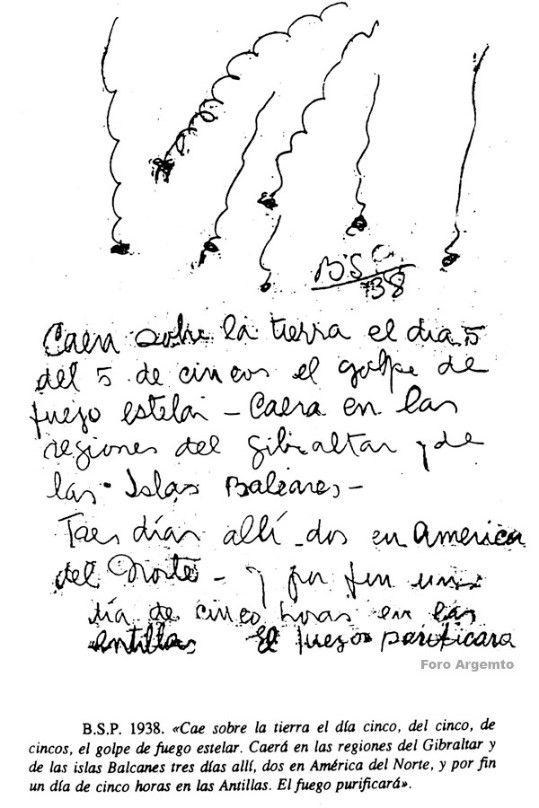 BSP
38
Caera sobre la tierra el dia 5
del 5 de cincos el golpe de
fuego estelar - Caera en las
regiones del gibraltar y de
las Islas Baleares -
Tres días allí - dos en America
del Norte - y por fin un
día de cinco horas en las
antillas El fuego purificara
Foro Argemto
B.S.P. 1938. «Cae sobre la tierra el día cinco, del cinco, de
cincos, el golpe de fuego estelar. Caerá en las regiones del Gibraltar y
de las islas Balcanes tres días allí, dos en América del Norte, y por fin
un día de cinco horas en las Antillas. El fuego purificará».